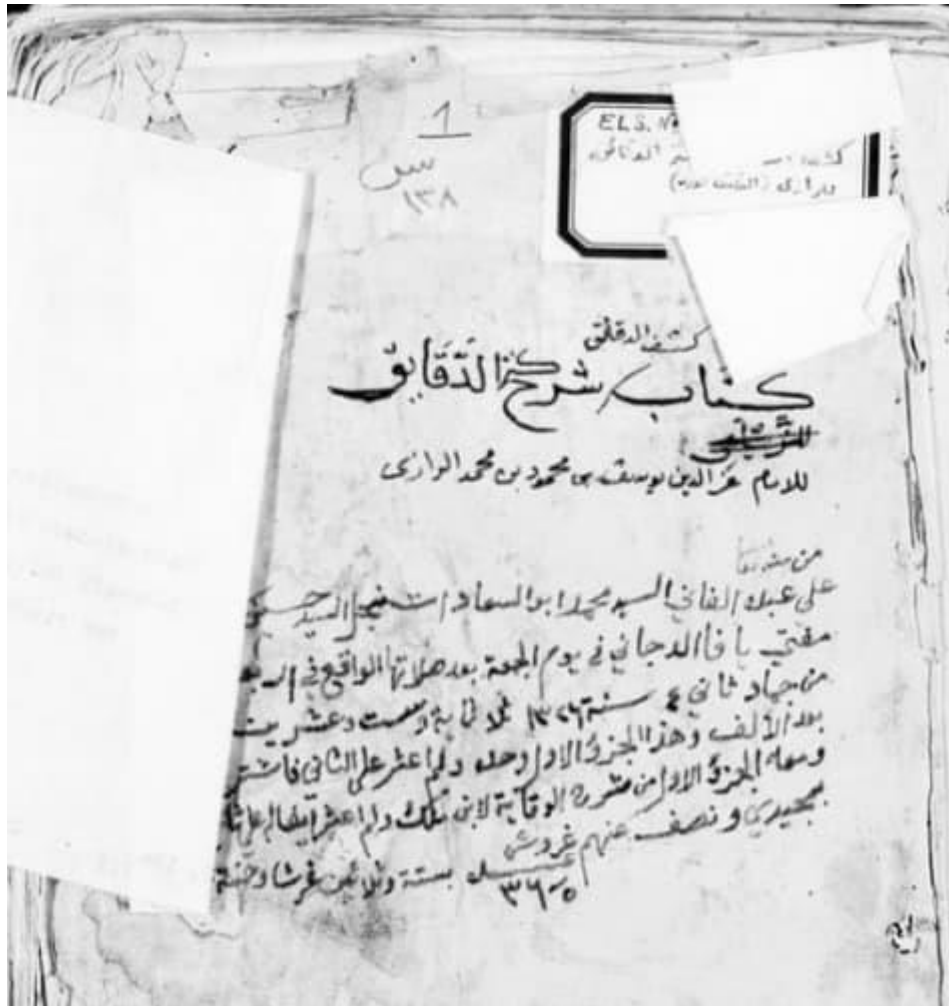 1
س
١٣٨
ELS. No
للرازي
كشف الدقائق
كتاب شرح كنز الدقايق
للزيلعي
للامام عز الدين يوسف بن محمود بن محمد الرازي
على عبده الفاني السيد محمد ابو السعادات نجل السيد حسين
مفتي يافا الدجاني في يوم الجمعة بعد صلاتها الواقع في الربع
من جماد ثاني ٤ سنة ١٣٢٦ ثلاثماية وست وعشرين
بعد الألف وهذا الجزؤ الاول وحده ولم اعثر على الثاني فاشتر
ومعه الجزؤ الاول من شرح الوقاية لابن ملك ولم اعثر ايضا على
بمجيدي ونصف عنهم غروش
بستة وثلاثين غرشا وخمسة
٣٦٥